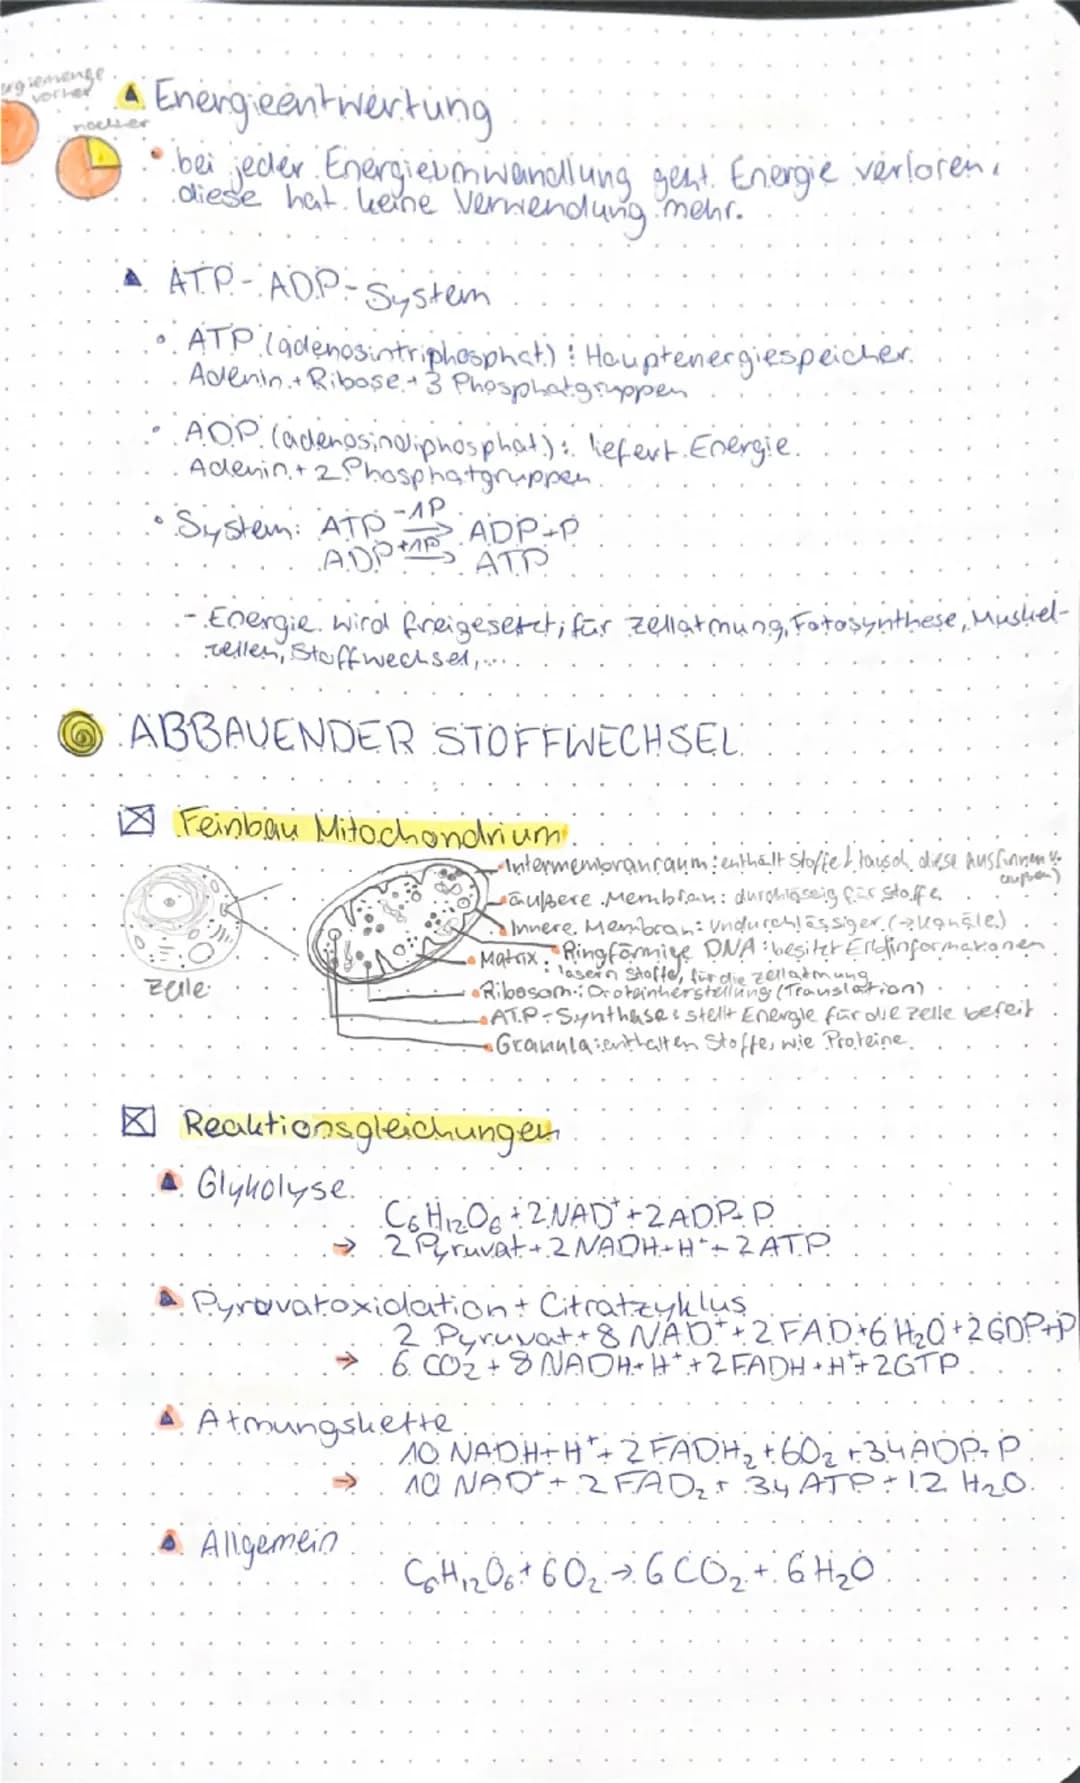 vorher
nachher
Energieentwertung
• bei jeder Energieumwandlung geht Energie verloren,
diese hat keine Verwendung mehr.
ATP-ADP-System
• ATP (adenosintriphosphat): Hauptenergiespeicher.
Adenin + Ribose + 3 Phosphatgruppen
• ADP (adenosindiphosphat): liefert Energie.
Adenin + 2 Phosphatgruppen
• System: ATP -1P→ ADP+P
ADP +1P→ ATP
- Energie wird freigesetzt; für Zellatmung, Fotosynthese, Muskel-
zellen, Stoffwechsel, ...
ABBAUENDER STOFFWECHSEL
Feinbau Mitochondrium
Intermembranraum: enthält Stoffe, tausch diese aus (innen
außen)
äußere Membran: durchlässig für Stoffe
Innere Membran: Undurchlässiger (→Kanäle)
Ringförmige DNA: besitzt Erbinformationen
Matrix: lösen Stoffe, für die Zellatmung
Zelle
Ribosom: Proteinherstellung (Translation)
ATP-Synthase: stellt Energie für die Zelle bereit
Granula: enthalten Stoffe, wie Proteine
Reaktionsgleichungen
Glykolyse
C₆H₁₂O₆ + 2 NAD⁺ + 2 ADP+P
→ 2 Pyruvat + 2 NADH+H⁺ + 2 ATP
Pyrovatoxidation + Citratzyklus
2 Pyruvat + 8 NAD⁺ + 2 FAD + 6 H₂O + 2 GDP+P
→ 6 CO₂ + 8 NADH+H⁺ + 2 FADH+H⁺ + 2 GTP
Atmungskette
10 NADH+H⁺ + 2 FADH₂ + 6O₂ + 34 ADP+P
→ 10 NAD⁺ + 2 FAD₂ + 34 ATP + 12 H₂O
Allgemein
C₆H₁₂O₆ + 6 O₂ → 6 CO₂ + 6 H₂O